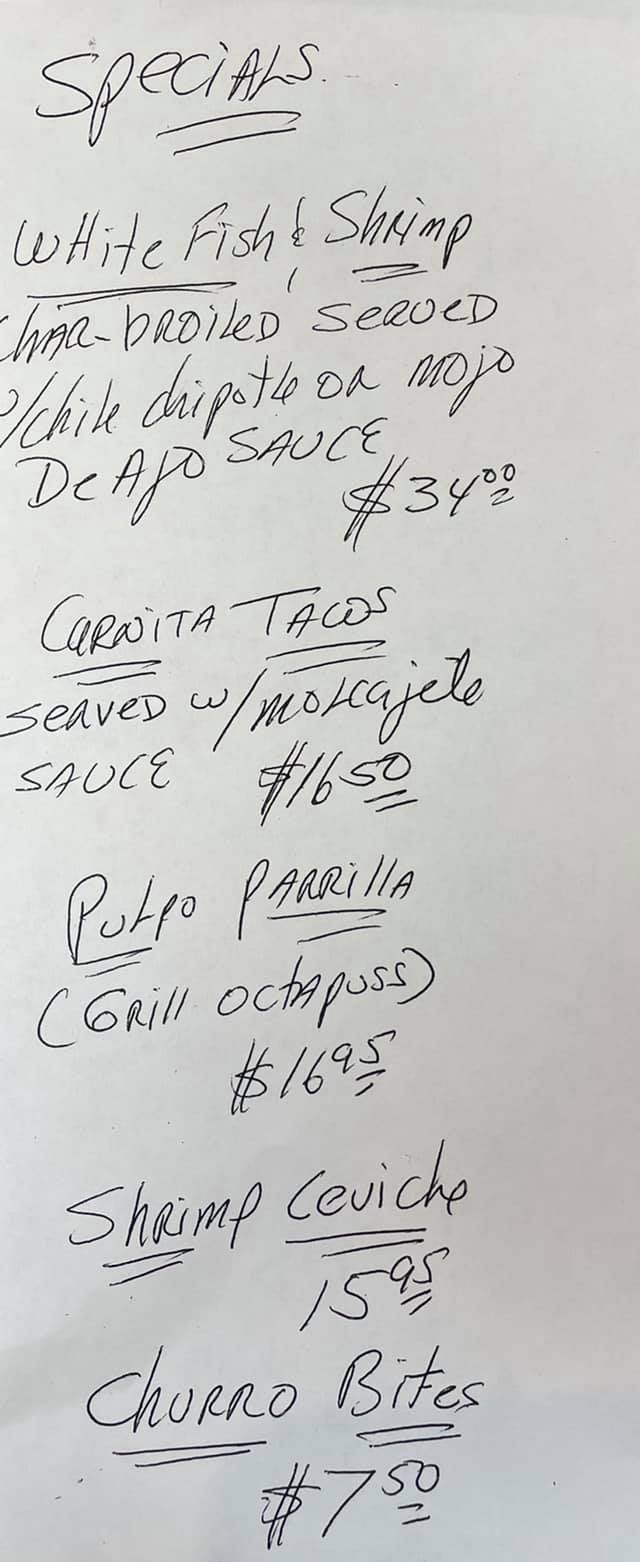 Specials
White Fish & Shrimp
Char-broiled served
w/chile chipotle or mojo
De Ajo SAUCE
$34.00
Carnita Tacos
served w/molcajete
SAUCE $16 50
Pulpo Parrilla
(Grill octapuss)
$16 95
Shrimp Ceviche
15 95
Churro Bites
$7 50